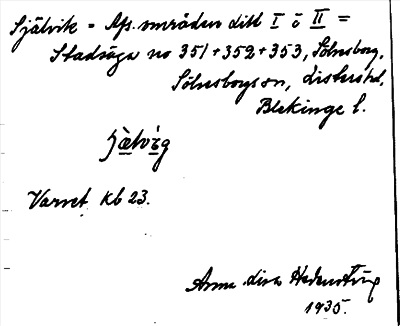 Självik = Afs. områden ditt I o II =
Stadsäga no 351+352+353, Sölvesborg,
Sölvesborgs sn, Listers hd,
Blekinge l.
Varvet Kb 23.
Anna Lisa Hedenstierna
1935.